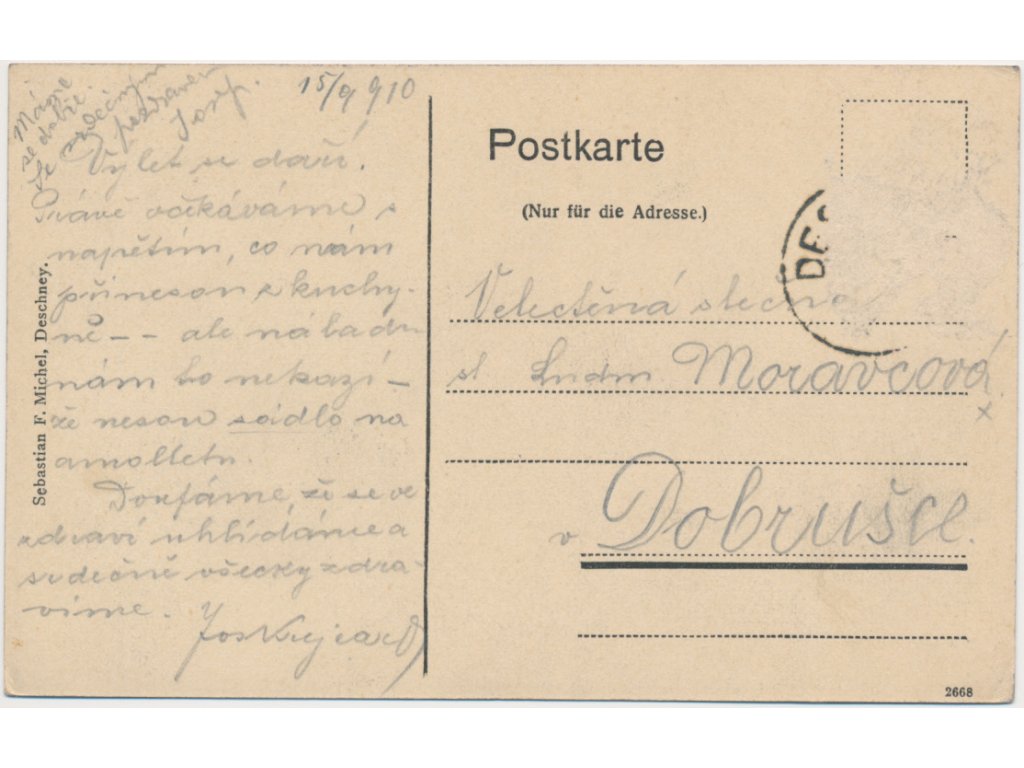 Máme
se dobře.
Se srdečným
pozdravem
Josef.
15/9 910
Výlet se daří.
Právě očekáváme s
napětím, co nám
přinesou z kuchy-
ně - - ale náladu
nám to nekazí -
že nesou soidlo na
amolletu.
Doufáme že se ve
zdraví uhlídáme a
srdečně všecky zdra-
víme.
Sebastian F. Michel, Deschney.
Postkarte
(Nur für die Adresse.)
DES
Velectěná slečna
sl Ludm Moravcová
x
v Dobrušce.
2668